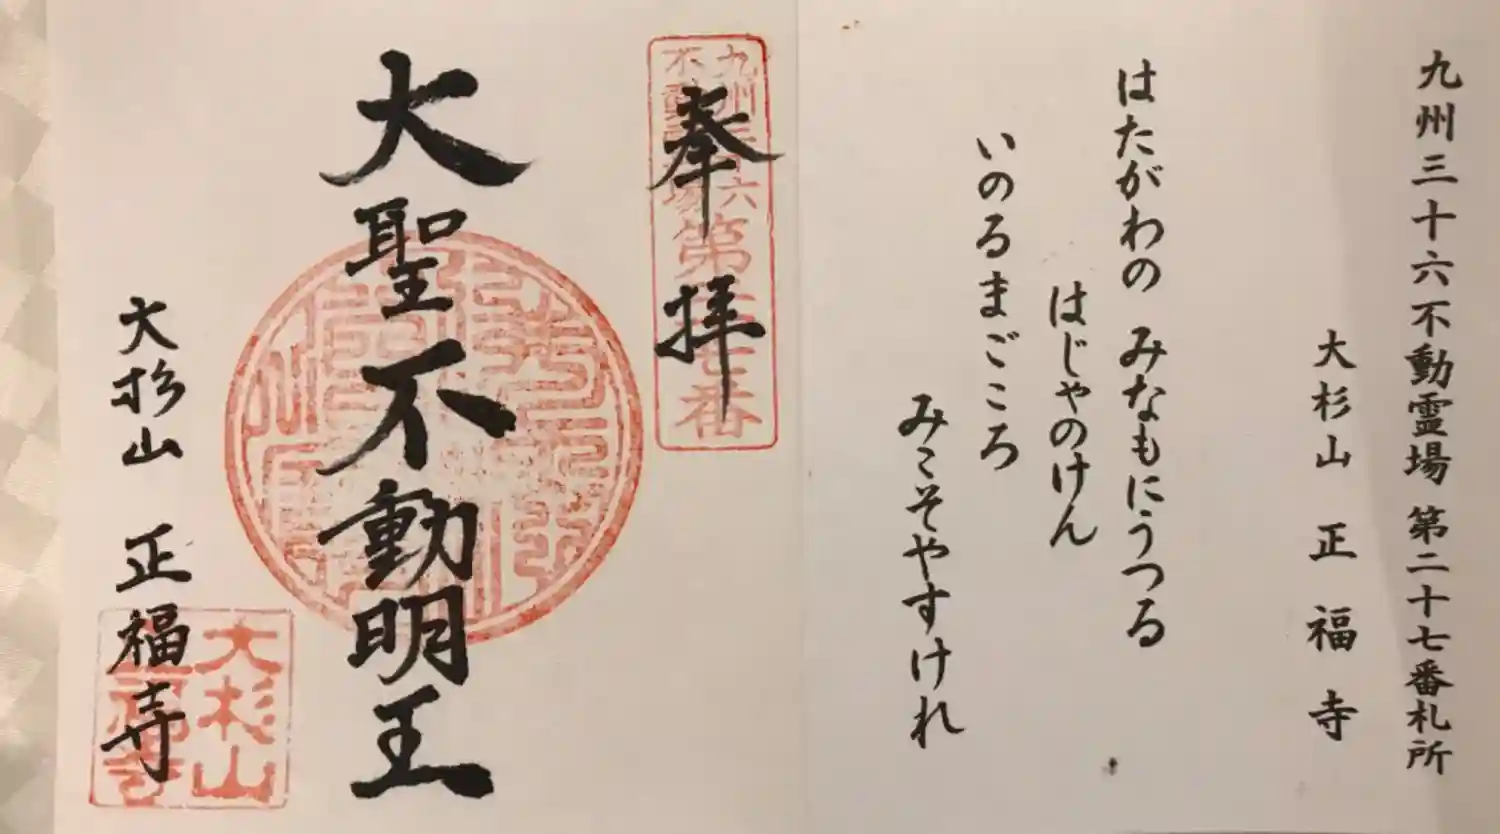 九州三十六不動霊場 第二十七番札所
大杉山 正福寺
はたがわの みなもにうつる
はじゃのけん
いのるまごころ
みこそやすけれ
奉拝
九州三十六
不動霊場
第二十七番
大聖不動明王
大杉山 正福寺
大杉山
正福寺